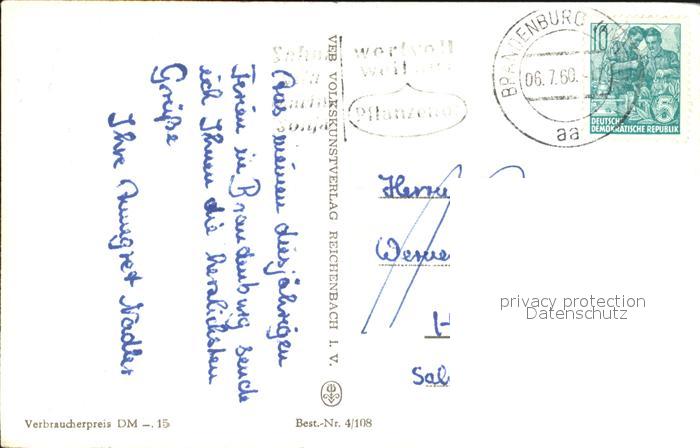 Aus meinen diesjährigen
Ferien in Brandenburg sende
ich Ihnen die herzlichsten
Grüße
Ihre Annegret Nadler
VEB VOLKSKUNSTVERLAG REICHENBACH I. V.
wertvoll
weil
Pflanzenöl
BRANDENBURG
06.7.60.
aa
10
5
DEUTSCHE
DEMOKRATISCHE REPUBLIK
Herrn
Werne
H
Sal
privacy protection
Datenschutz
Verbraucherpreis DM —. 15
Best.-Nr. 4/108